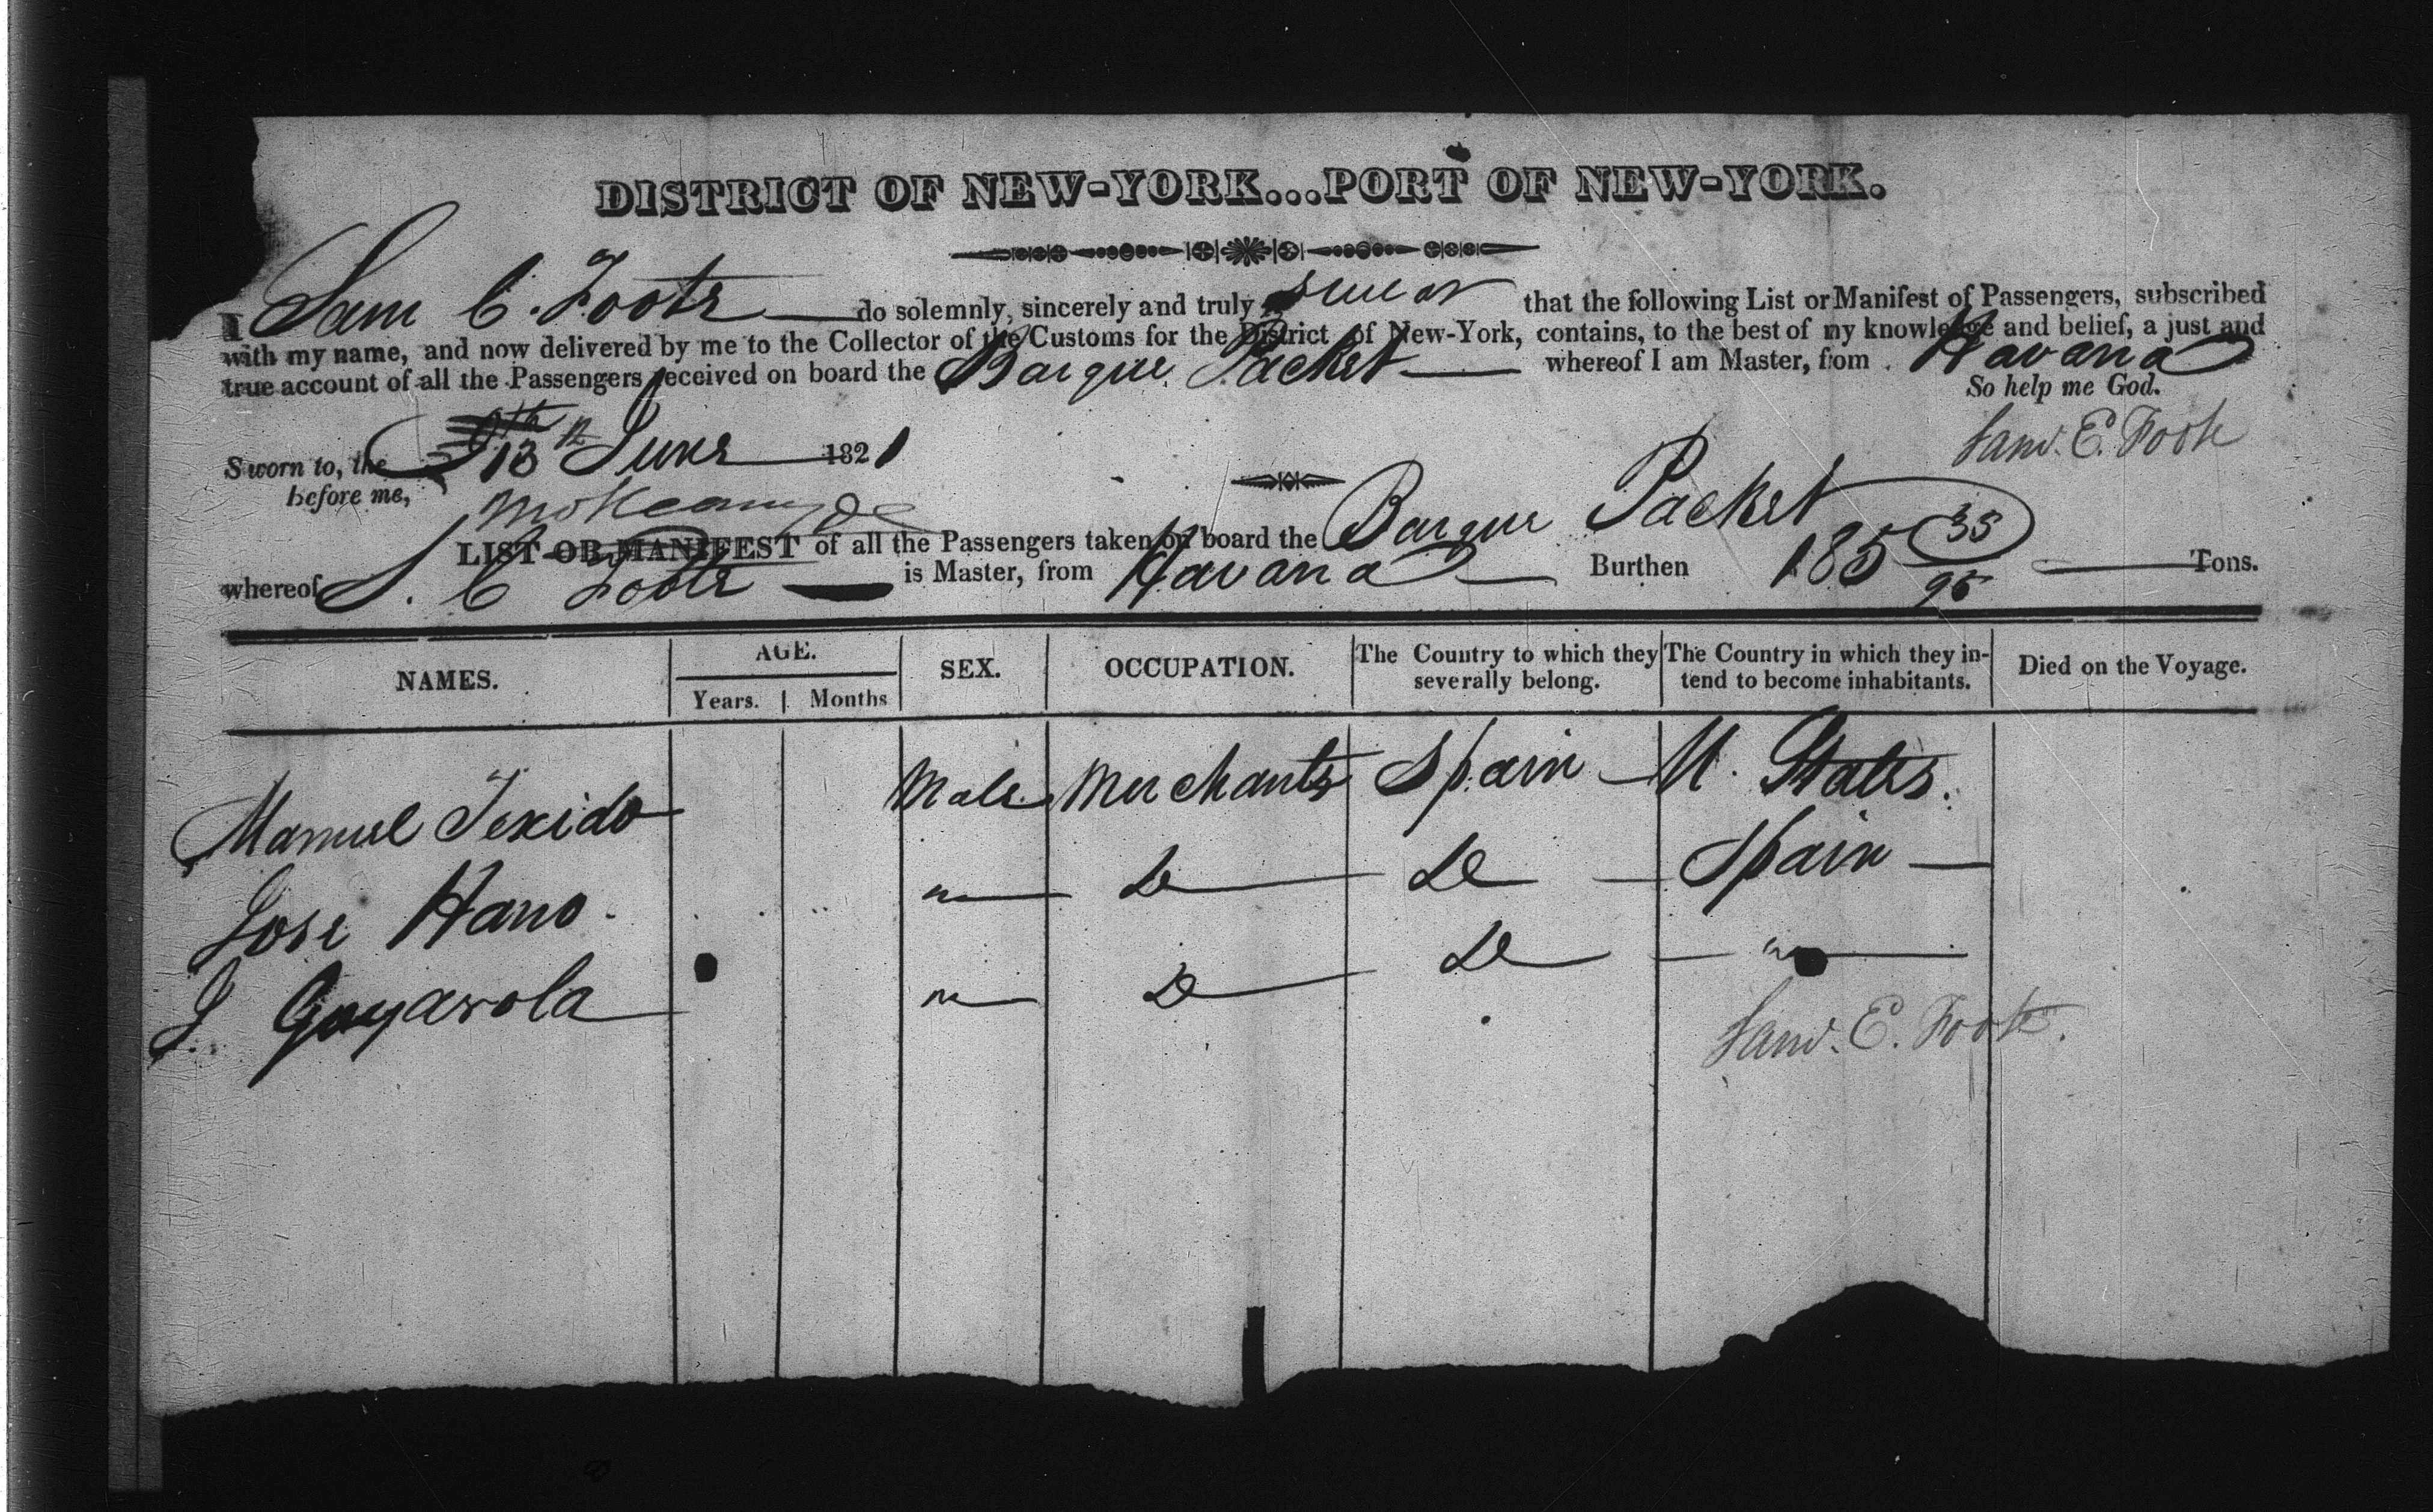 DISTRICT OF NEW-YORK...PORT OF NEW-YORK.
I Sam C. Foote do solemnly, sincerely and truly swear that the following List or Manifest of Passengers, subscribed
with my name, and now delivered by me to the Collector of the Customs for the District of New-York, contains, to the best of my knowledge and belief, a just and
true account of all the Passengers received on board the Barque Packet whereof I am Master, from Havana
So help me God.
Sworn to, the 13th June 1821
Saml. E. Foote
before me,
LIST OR MANIFEST of all the Passengers taken on board the Barque Packet
whereof S. C Foote is Master, from Havana Burthen 185 35/95 Tons.
NAMES. AGE. Years. Months SEX. OCCUPATION. The Country to which they severally belong. The Country in which they intend to become inhabitants. Died on the Voyage.
Manuel Texido Male Merchants Spain U. States.
Jose Hano. " Do Do Spain
J Goyarola " Do Do "
Saml. E. Foote.